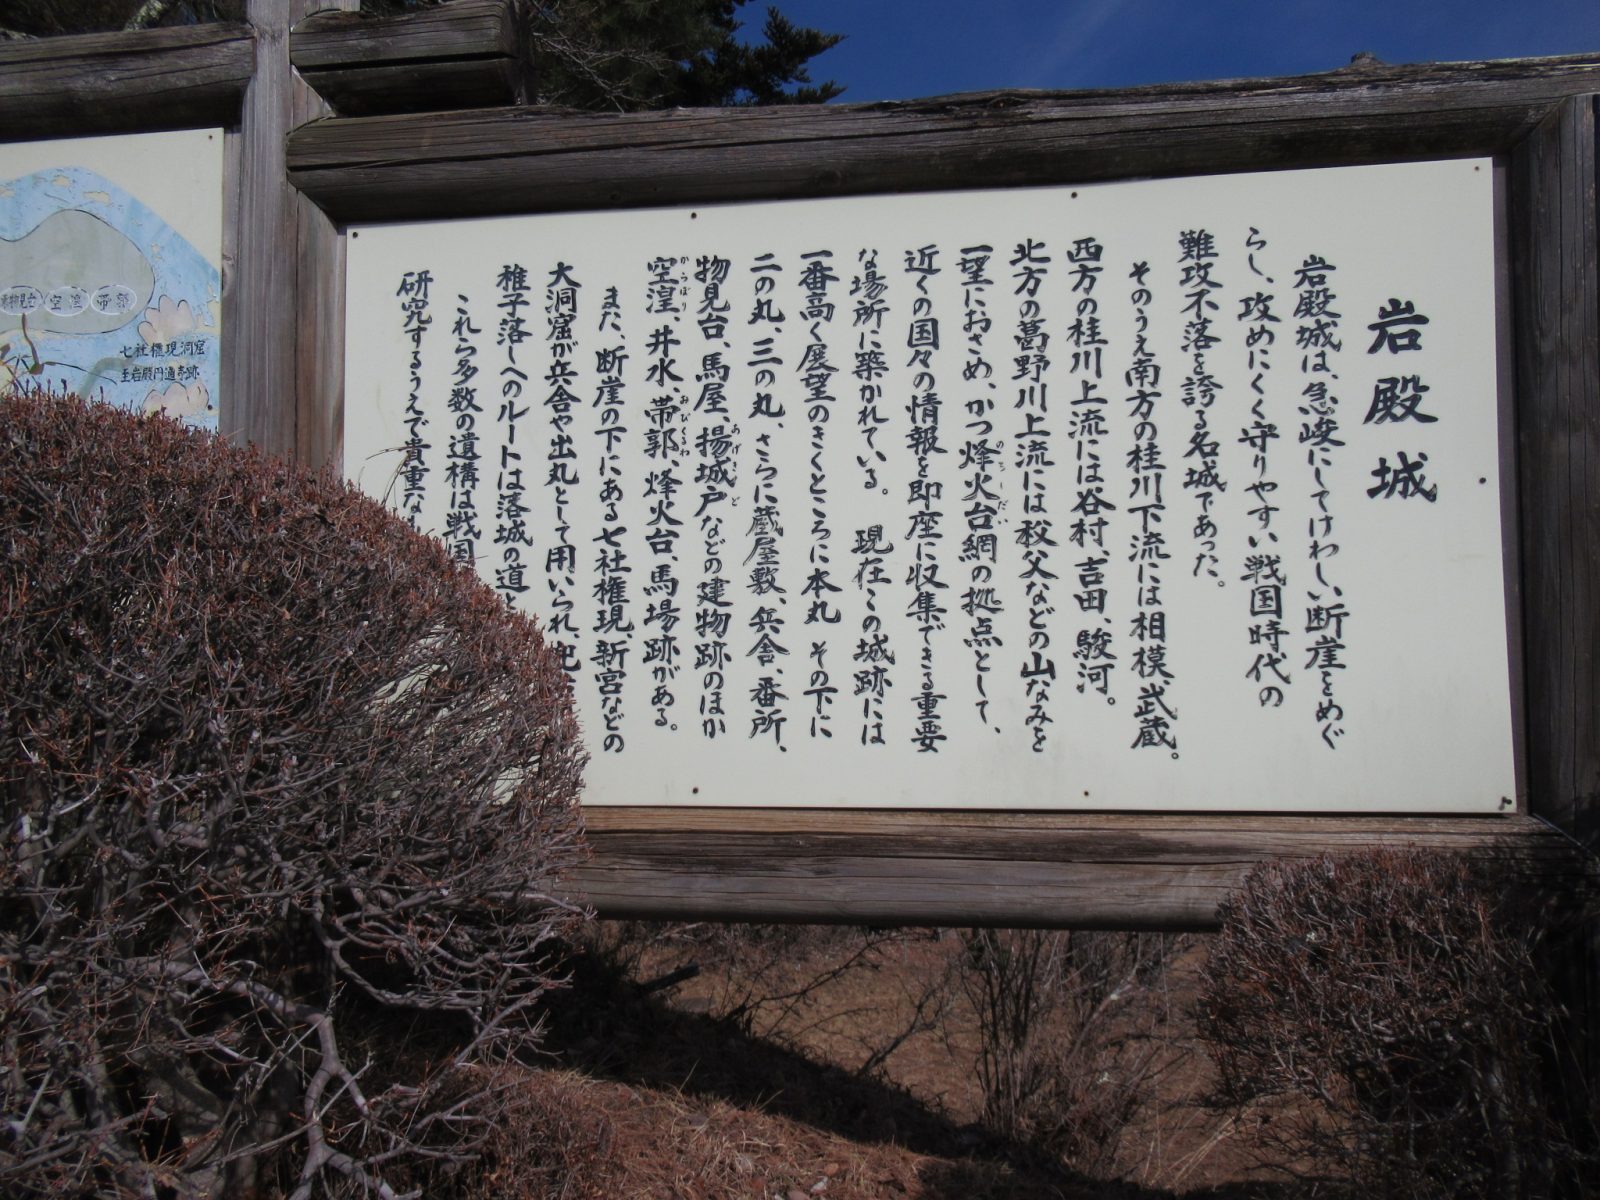 岩殿城
岩殿城は、急峻にしてけわしい断崖をめぐ
らし、攻めにくく守りやすい戦国時代の
難攻不落を誇る名城であった。
そのうえ南方の桂川下流には相模、武蔵。
西方の桂川上流には谷村、吉田、駿河。
北方の葛野川上流には秩父などの山なみを
一望におさめ、かつ烽火台網の拠点として、
のろしだい
近くの国々の情報を即座に収集できる重要
な場所に築かれている。現在この城跡には
一番高く展望のきくところに本丸 その下に
二の丸、三の丸、さらに蔵屋敷、兵舎、番所、
物見台、馬屋、揚城戸などの建物跡のほか
あげきど
空湟、井水、帯郭、烽火台、馬場跡がある。
からぼり
おびくるわ
また、断崖の下にある七社権現、新宮などの
大洞窟が兵舎や出丸として用いられ、
稚子落しへのルートは落城の道と
これら多数の遺構は戦国
研究するうえで貴重な
空湟
帯郭
七社権現洞窟
至岩殿円通寺跡